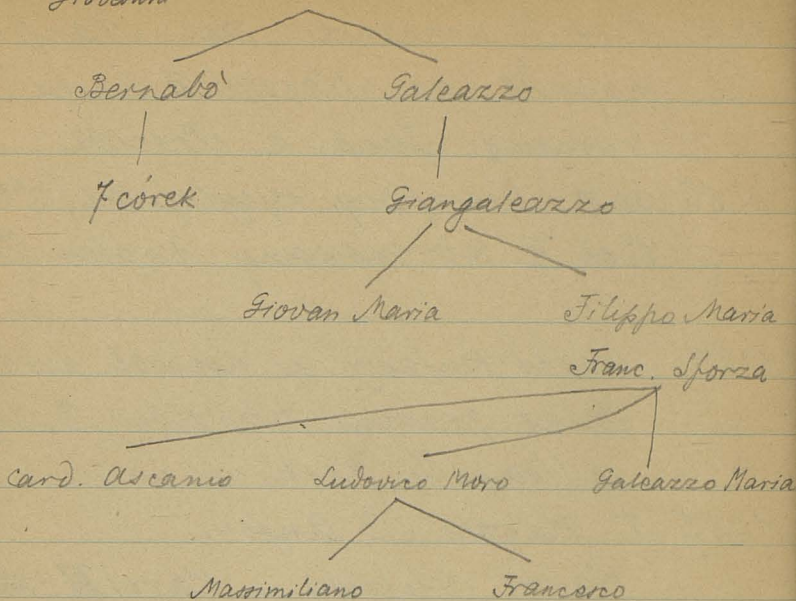 Bernabò Galeazzo
7 córek Giangaleazzo
Giovan Maria Filippo Maria
Franc. Sforza
Card. Ascanio Ludovico Moro Galeazzo Maria
Massimiliano Francesco